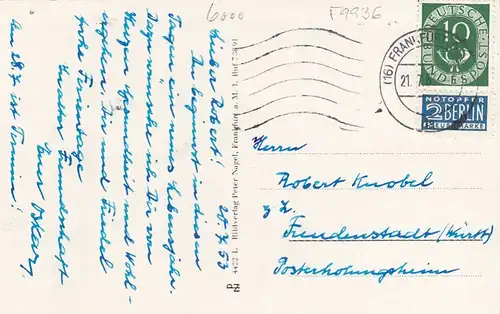 6000
F9936
DEUTSCHE
BUNDESPOST
10
NOTOPFER
2 BERLIN
STEUERMARKE
(16) FRANKFU
21.7.
20.7.53
Lieber Robert!
In diesen
Tagen ein neues Lebensjahr.
Dazu wünsche ich Dir von
Herzen Gesundheit und Wohl-
ergehen, Dir und
frohe Ferientage
Freundschaft
Euer Oskar.
Am 28.7 ist Termin!
4472 L Bildverlag Peter Nagel, Frankfurt a. M. 1, Ruf
Herrn
Robert Knobel
z. Z.
Freudenstadt (Württ)
Posterholungsheim